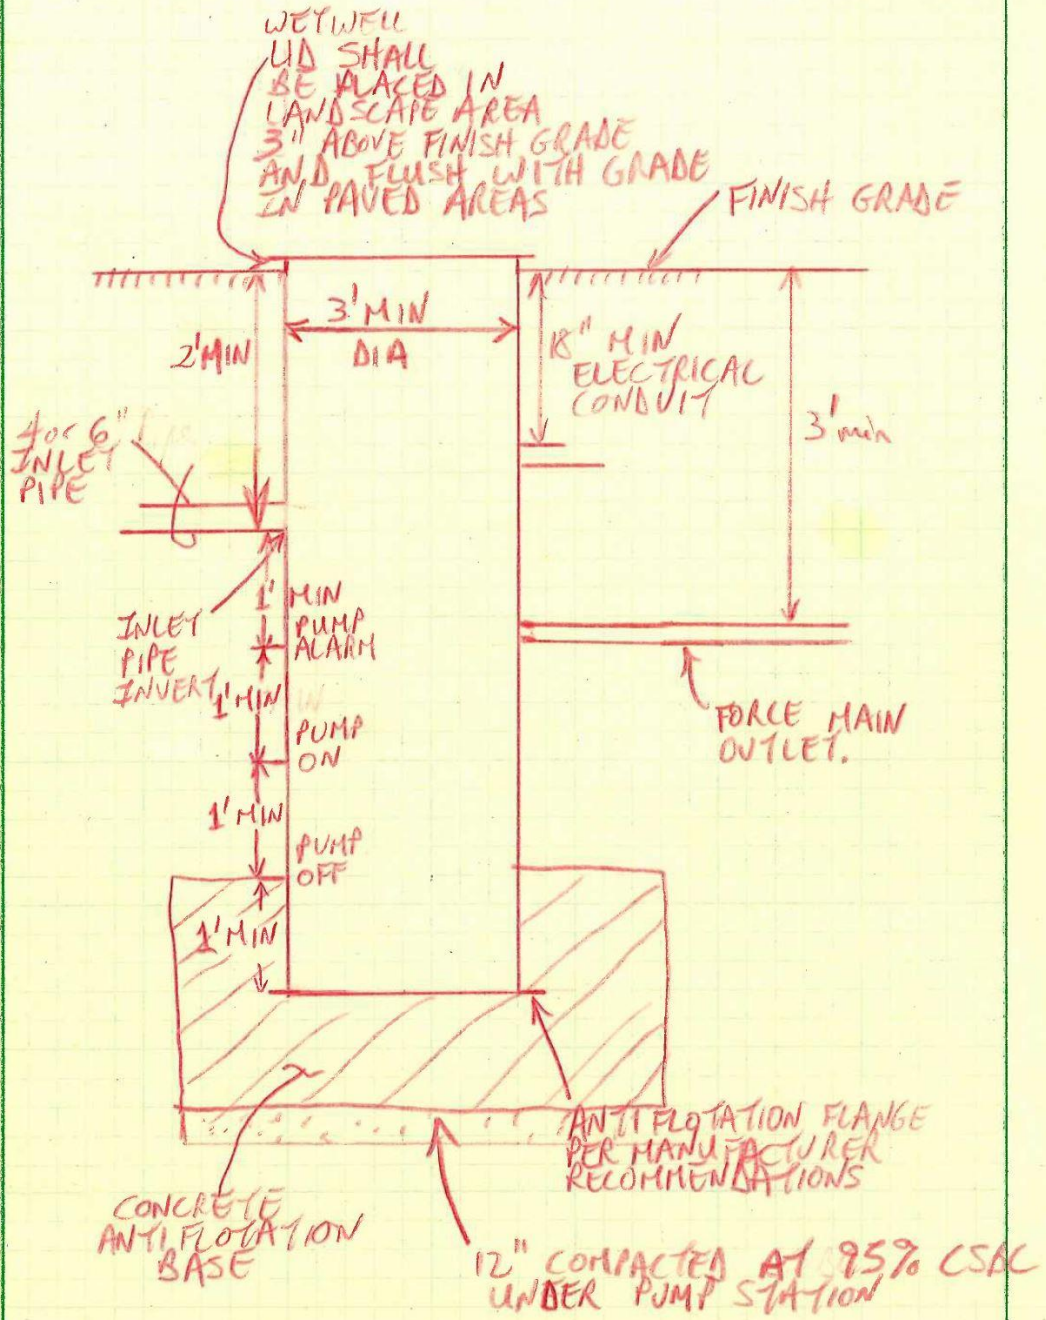 WETWELL
LID SHALL
BE PLACED IN
LANDSCAPE AREA
3" ABOVE FINISH GRADE
AND FLUSH WITH GRADE
IN PAVED AREAS
FINISH GRADE
3' MIN
DIA
2' MIN
18" MIN
ELECTRICAL
CONDUIT
3' min
4 or 6"
INLET
PIPE
1' MIN
PUMP
ALARM
INLET
PIPE
INVERT
1' MIN
PUMP
ON
FORCE MAIN
OUTLET.
1' MIN
PUMP
OFF
1' MIN
ANTI FLOTATION FLANGE
PER MANUFACTURER
RECOMMENDATIONS
CONCRETE
ANTI FLOTATION
BASE
12" COMPACTED AT 95% CSBC
UNDER PUMP STATION